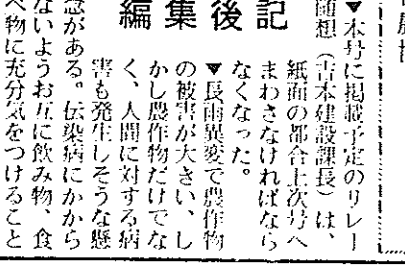 編集後記
▼本号に掲載予定のリレー
随想（吉本建設課長）は、
紙面の都合上次号へ
まわさなければなら
なくなった。
▼長雨異変で農作物
の被害が大きい、し
かし農作物だけでな
く、人間に対する病
害も発生しそうな懸
念がある。伝染病にかから
ないようお互に飲み物、食
べ物に充分気をつけること